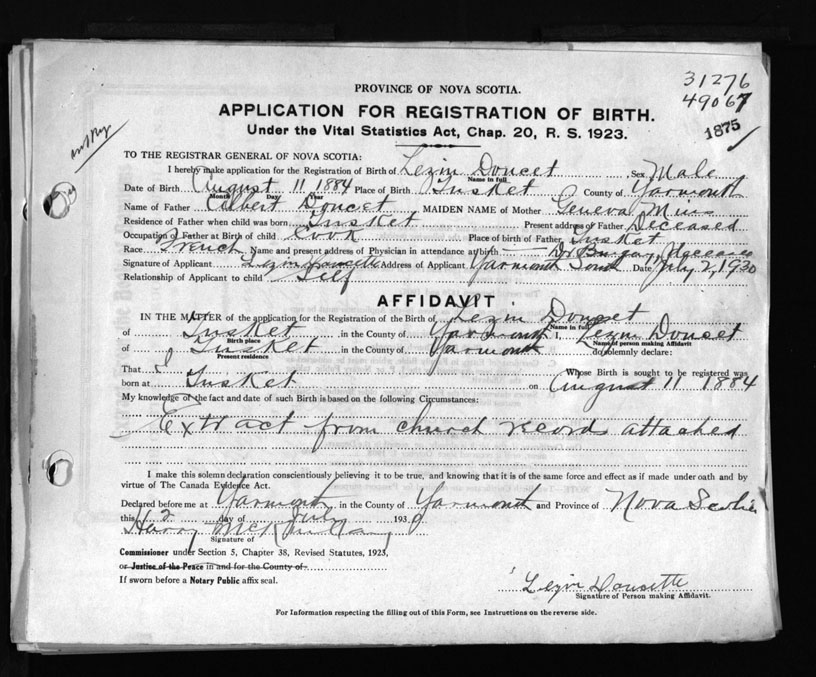 31276
PROVINCE OF NOVA SCOTIA.
49067
APPLICATION FOR REGISTRATION OF BIRTH.
1875
Under the Vital Statistics Act, Chap. 20, R. S. 1923.
TO THE REGISTRAR GENERAL OF NOVA SCOTIA:
I hereby make application for the Registration of Birth of Lezin Doucet Sex Male
Name in full
Date of Birth August 11 1884 Place of Birth Tusket County of Yarmouth
Month Day Year
Name of Father Albert Doucet MAIDEN NAME of Mother Geneva
Residence of Father when child was born Tusket Present address of Father Deceased
Occupation of Father at Birth of child Cook Place of birth of Father Tusket
Race French Name and present address of Physician in attendance at birth Dr
Signature of Applicant Lezin Doucette Address of Applicant Yarmouth Date July 2, 1930
Relationship of Applicant to child Self
AFFIDAVIT
IN THE MATTER of the application for the Registration of the Birth of Lezin Doucet
Name in full
of Tusket in the County of Yarmouth I, Lezin Doucet
Birth place Name of person making Affidavit
of Tusket in the County of Yarmouth do solemnly declare:
Present residence
That I Whose Birth is sought to be registered was
born at Tusket on August 11 1884
My knowledge of the fact and date of such Birth is based on the following Circumstances:
Extract from church records attached
I make this solemn declaration conscientiously believing it to be true, and knowing that it is of the same force and effect as if made under oath and by
virtue of The Canada Evidence Act.
Declared before me at Yarmouth in the County of Yarmouth and Province of Nova Scotia
this 2 day of July 1930
Harry
Signature of
Commissioner under Section 5, Chapter 38, Revised Statutes, 1923,
or Justice of the Peace in and for the County of
If sworn before a Notary Public affix seal.
Lezin Doucette
Signature of Person making Affidavit.
For Information respecting the filling out of this Form, see Instructions on the reverse side.